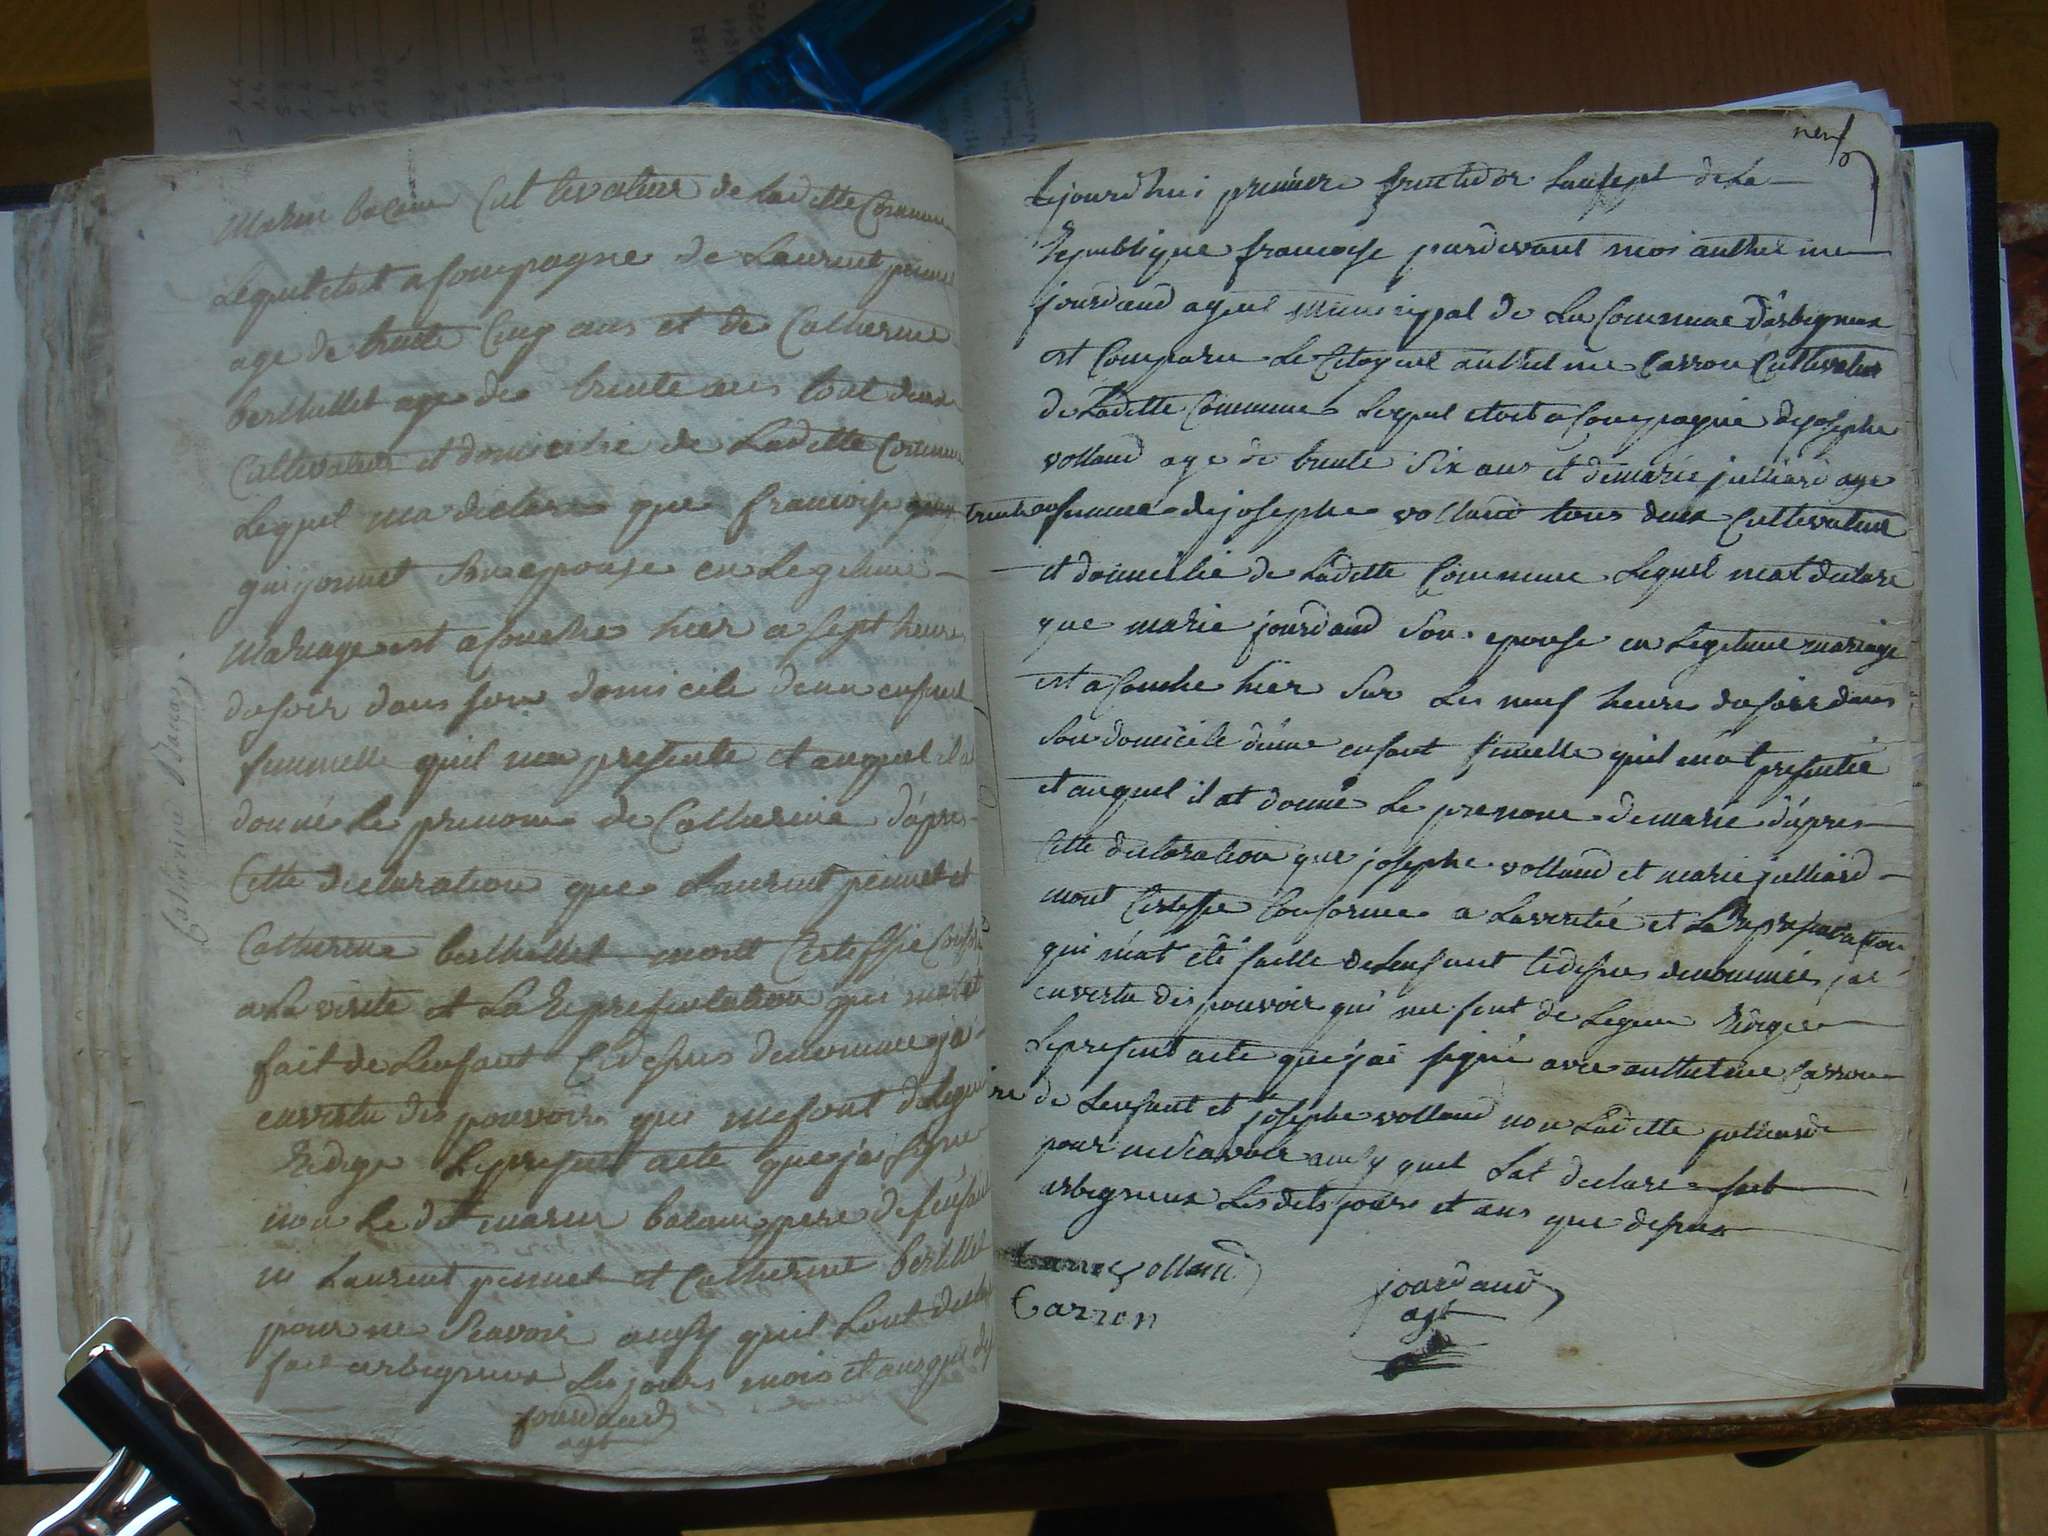 Marin bacam Cultivateur de Laditte Commune
Lequel etoit acompagne de Laurent pennet
age de trente Cinq ans et de Catherine
berthellet age de trente ans tout deux
Cultivateur et domicilié de Laditte Commune
Lequel ma declare que francoise
guijonnet Son epouse en Legitime
Mariage est acouche hier a sept heures
dusoir dans son domicile denu enfant
femmelle quil ma presente et auquel il a
donné le prenom de Catherine d'apres
Cette declaration que Laurent pennet et
Catherine berthellet mont Certiffie Conforme
a La verite et La Representation qui mat et
fait de Lenfant Cidesus denommee jai
envertu des pouvoirs qui mesont delegue
Redige Lepresent acte que jai signe
non Le dit marin bacam pere de lenfant
ni Laurent pennet et Catherine berthellet
pour ne Scavoir ausy quil Lont declare
fait arbigneux Les jours mois et ans que des
jourdand
agt
Catherine
neuf
Aejourdhui premiere fructidor Lansept de La
Republique francoise pardevant moi anthelme
jourdand agent Municipal de La Commune d'arbigneux
est Comparu Le Citoyent anthelme Carron Cultivateur
de Laditte Commune Lequel etoit acompagnié dejosephe
volland age de trente Six ans et demarie julliard age
trente an femme dejosephe volland tous deux Cultivateur
et domicilié de Laditte Commune Lequel mat declare
que marie jourdand Son epouse en Legitime mariage
est acouche hier Sur Les neuf heure dusoir dans
Son domicile d'une enfant femelle quil mat presentée
et auquel il at donné Le prenom demarie d'apres
Cette declaration que josephe volland et marie julliard
mont Certiffie Conforme a Laveritée et La Representation
qui mat été faitte delenfant Cidesus denommée jai
envertu des pouvoir qui me sont de Legue Redige
Lepresent acte que j'ai signé avec anthelme Carron
pere de Lenfant et josephe volland non Laditte julliard
pour neScavoir ausy quel Lat declare fait
arbigneux Lesdits jours et ans que desus
volland
jourdand
Carron
agt